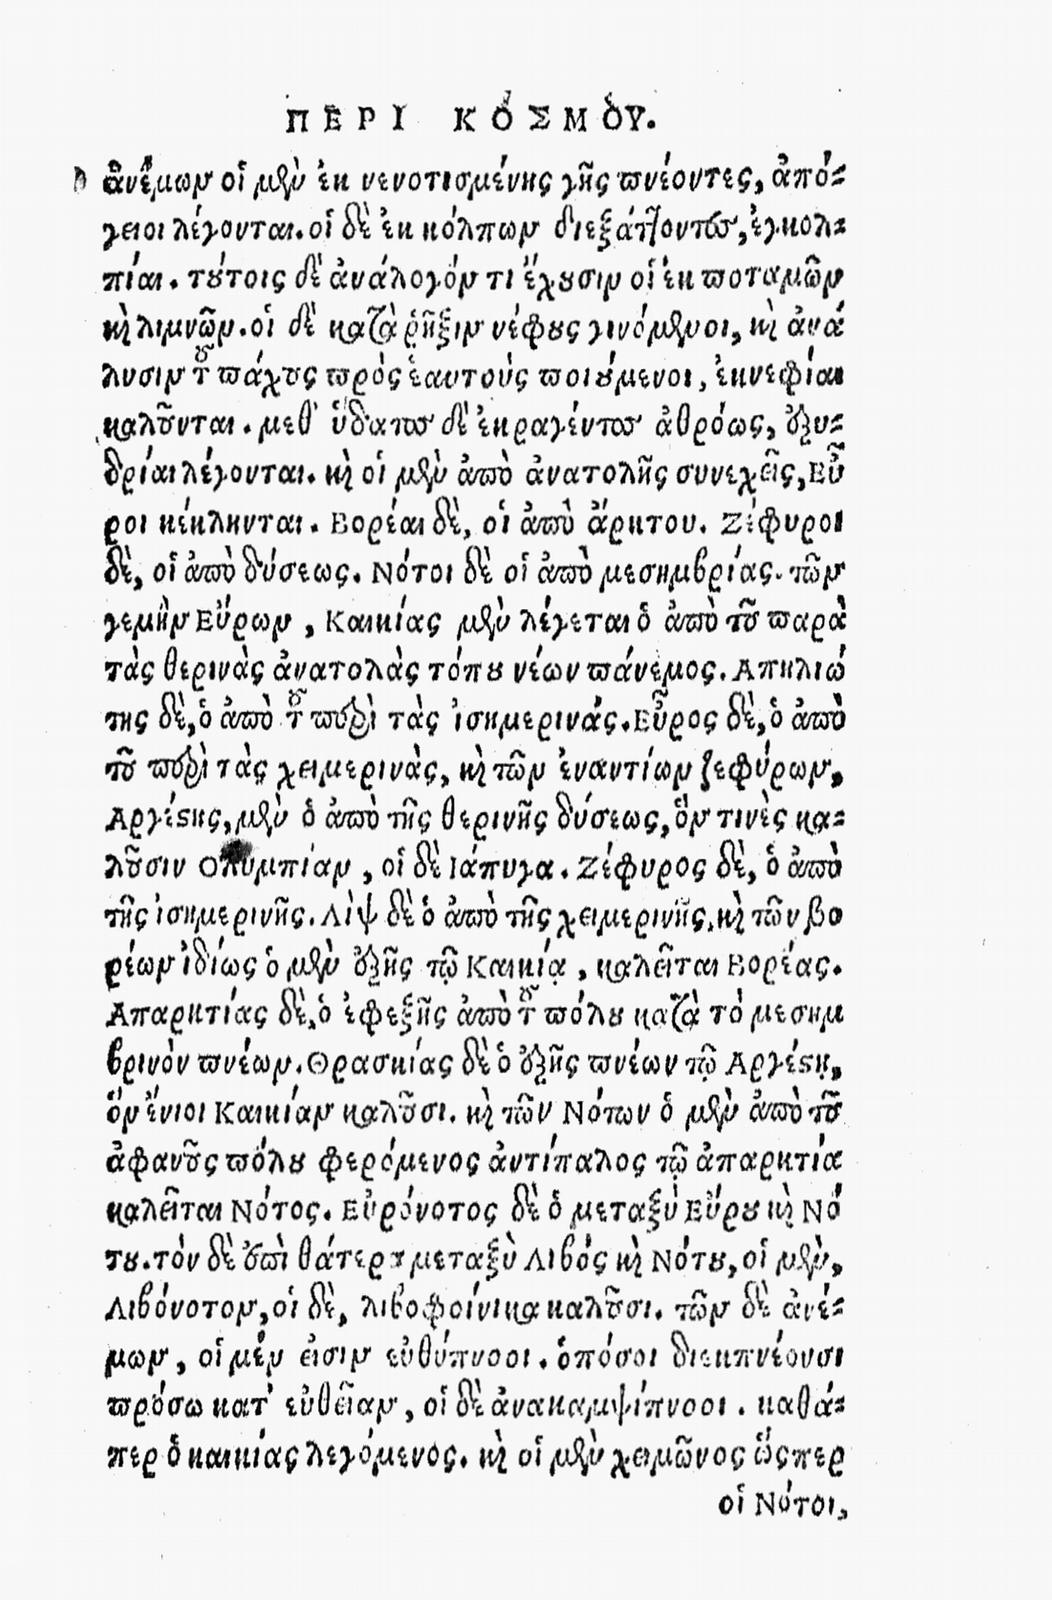 ΠΕΡΙ ΚΟΣΜΟΥ.
ἀνέμων οἱ μὲν ἐκ νενοτισμένης γῆς πνέοντες, ἀπό-
γειοι λέγονται. οἱ δὲ ἐκ κόλπων διεξάττοντες, ἐγκολ-
πίαι. τούτοις δὲ ἀνάλογόν τι ἔχουσιν οἱ ἐκ ποταμῶν
καὶ λιμνῶν. οἱ δὲ κατὰ ῥῆξιν νέφους γινόμενοι, καὶ ἀνά
λυσιν τοῦ πάχους πρὸς ἑαυτοὺς ποιούμενοι, ἐκνεφίαι
καλοῦνται. μεθ' ὕδατος δὲ ἐκραγέντος ἀθρόως, ἐξυ-
δρίαι λέγονται. καὶ οἱ μὲν ἀπὸ ἀνατολῆς συνεχεῖς, Εὖ
ροι κέκληνται. Βορέαι δὲ, οἱ ἀπὸ ἄρκτου. Ζέφυροι
δὲ, οἱ ἀπὸ δύσεως. Νότοι δὲ οἱ ἀπὸ μεσημβρίας. τῶν
γεμὴν Εὔρων, Καικίας μὲν λέγεται ὁ ἀπὸ τοῦ παρὰ
τὰς θερινὰς ἀνατολὰς τόπου νέων πάνεμος. Απηλιώ
της δὲ, ὁ ἀπὸ τοῦ περὶ τὰς ἰσημερινάς. Εὖρος δὲ, ὁ ἀπὸ
τοῦ περὶ τὰς χειμερινὰς, καὶ τῶν ἐναντίων ζεφύρων,
Αργέστης, μὲν ὁ ἀπὸ τῆς θερινῆς δύσεως, ὅν τινὲς κα-
λοῦσιν Ολυμπίαν, οἱ δὲ Ιάπυγα. Ζέφυρος δὲ, ὁ ἀπὸ
τῆς ἰσημερινῆς. Λὶψ δὲ ὁ ἀπὸ τῆς χειμερινῆς, καὶ τῶν βο
ρέων ἰδίως ὁ μὲν ἑξῆς τῷ Καικίᾳ, καλεῖται Βορέας.
Απαρκτίας δὲ, ὁ ἐφεξῆς ἀπὸ τοῦ πόλου κατὰ τὸ μεσημ
βρινὸν πνέων. Θρασκίας δὲ ὁ ἑξῆς πνέων τῷ Αργέστῃ,
ὅν ἔνιοι Καικίαν καλοῦσι. καὶ τῶν Νότων ὁ μὲν ἀπὸ τοῦ
ἀφανοῦς πόλου φερόμενος ἀντίπαλος τῷ ἀπαρκτία
καλεῖται Νότος. Εὐρόνοτος δὲ ὁ μεταξὺ Εὔρου καὶ Νό
του. τὸν δὲ ἐπὶ θάτερα μεταξὺ Λιβός καὶ Νότου, οἱ μὲν,
Λιβόνοτον, οἱ δὲ, λιβοφοίνικα καλοῦσι. τῶν δὲ ἀνέ-
μων, οἱ μέν εἰσιν εὐθύπνοοι. ὁπόσοι διεκπνέουσι
πρόσω κατ' εὐθεῖαν, οἱ δὲ ἀνακαμψίπνοοι. καθά-
περ ὁ καικίας λεγόμενος. καὶ οἱ μὲν χειμῶνος ὥςπερ
οἱ Νότοι,